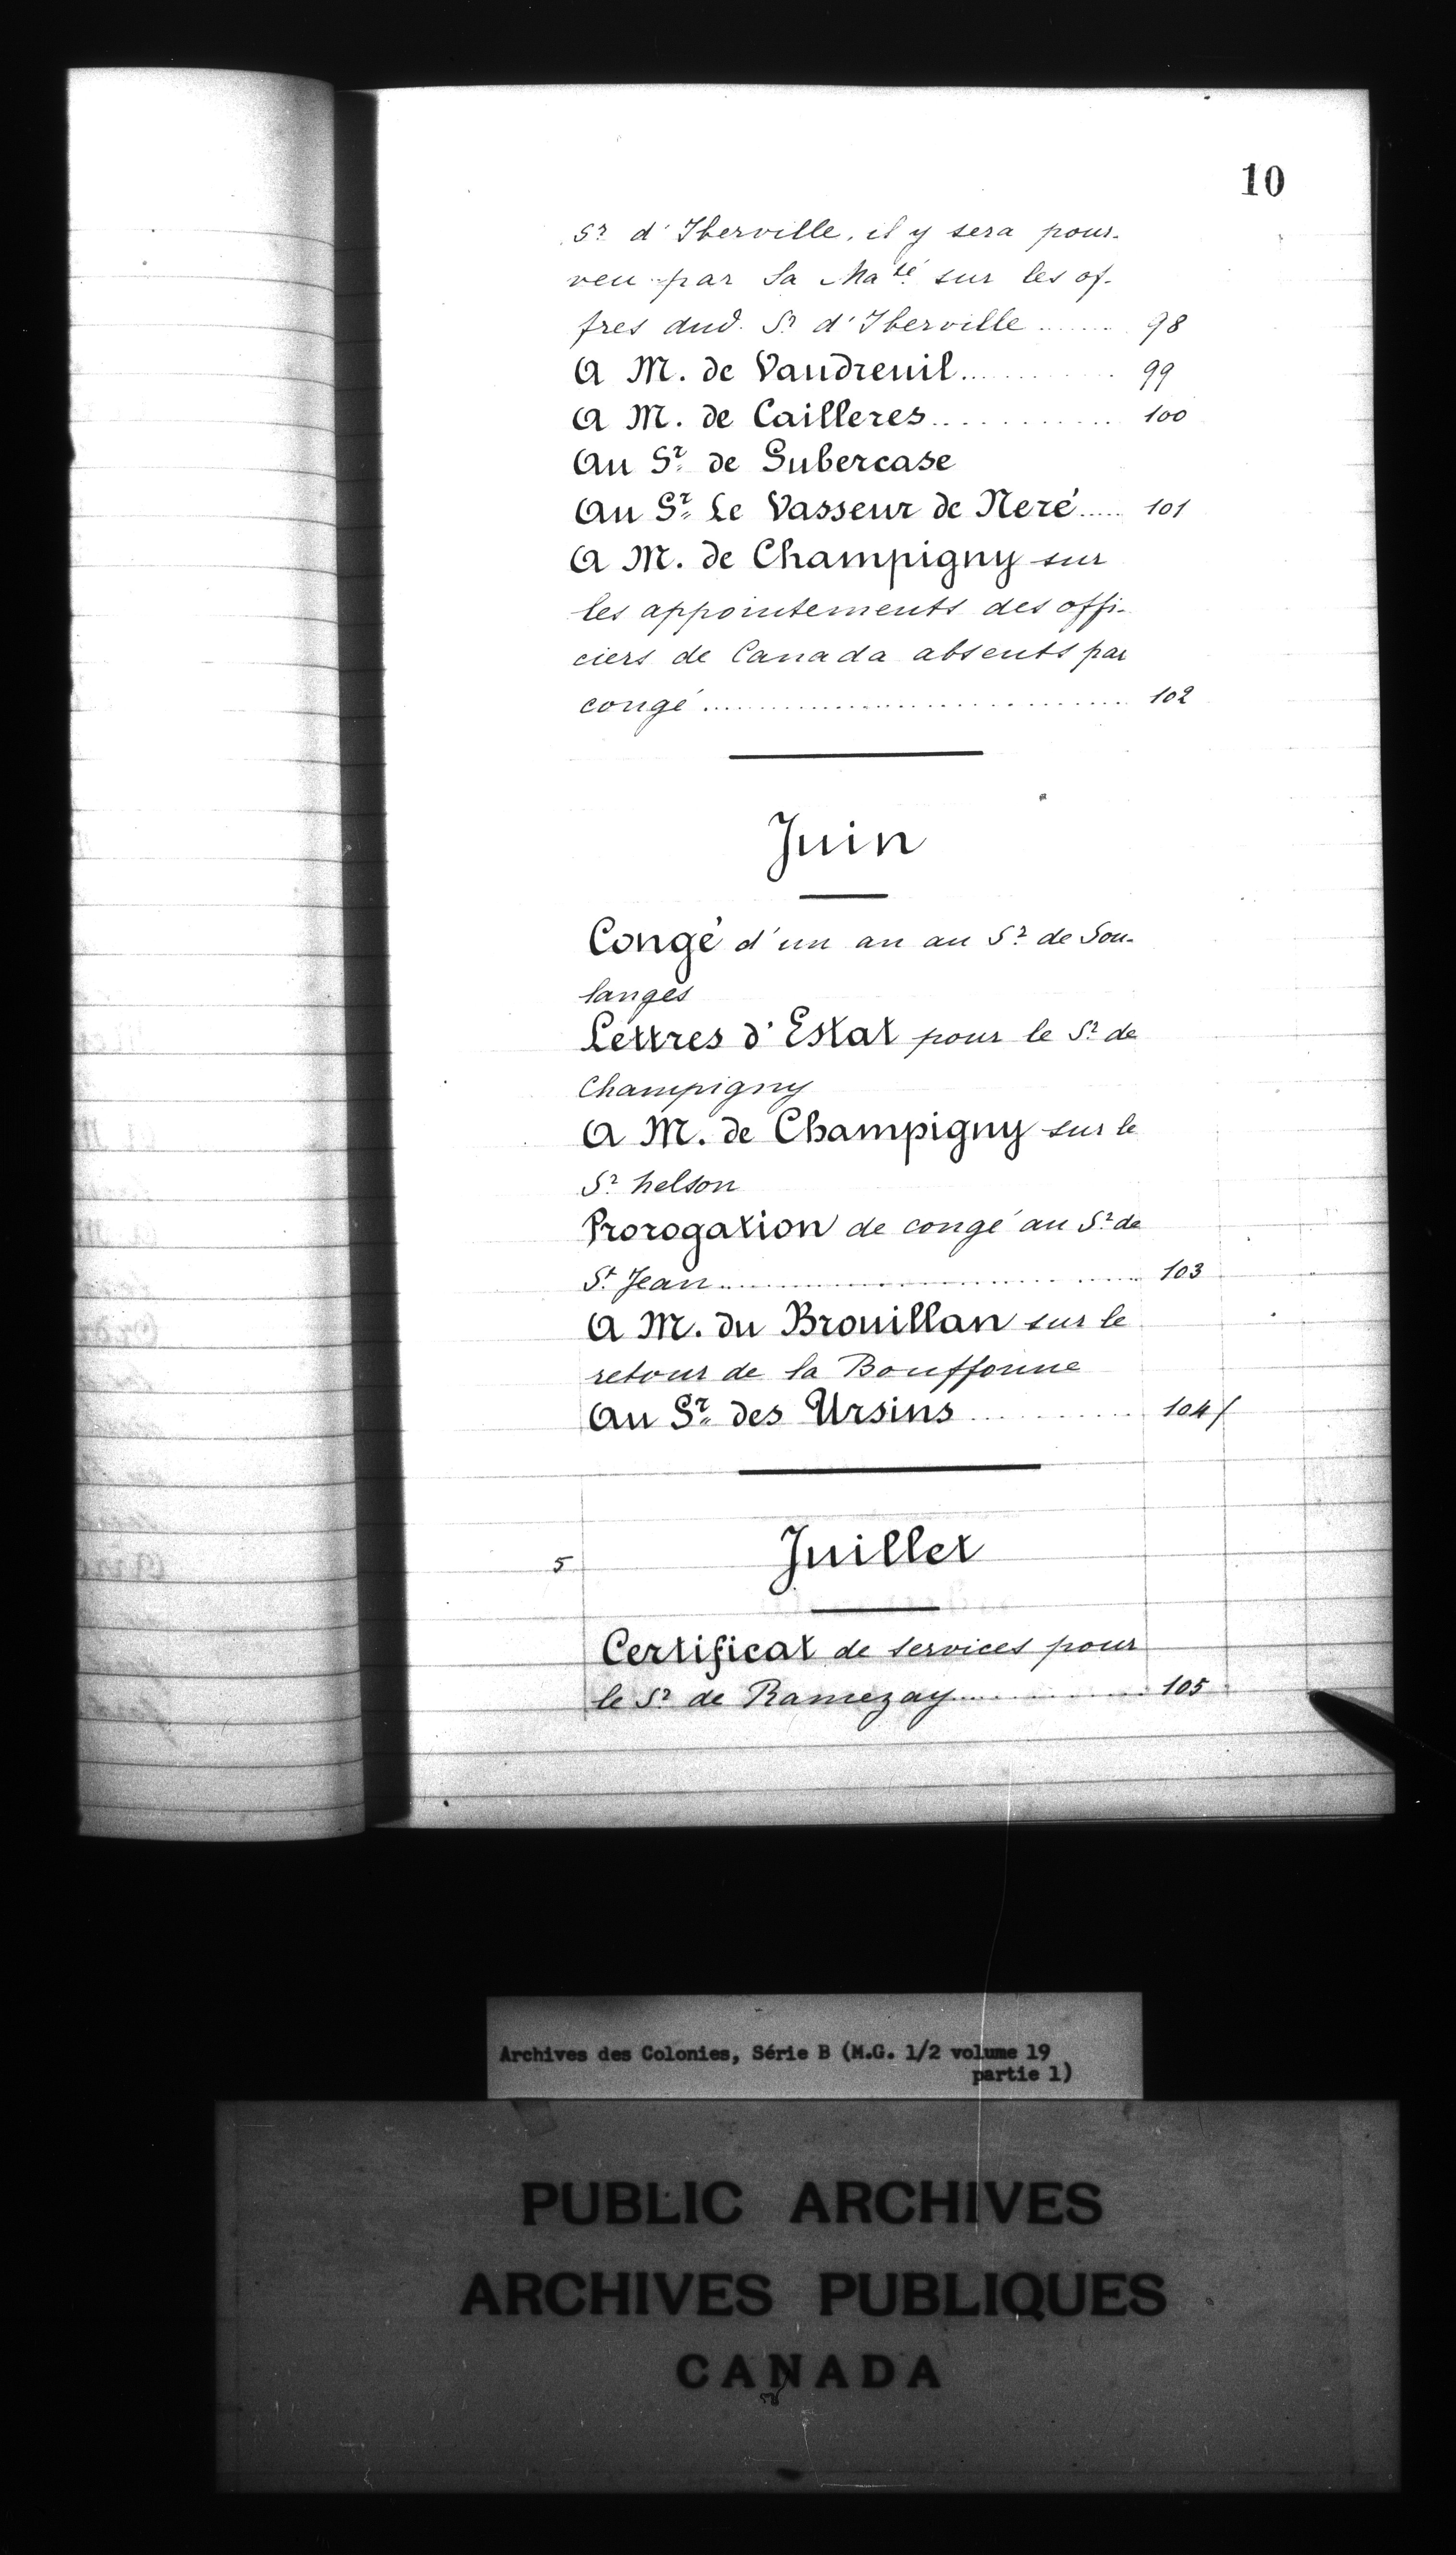 10
Sr d'Iberville, il y sera pour-
veu par Sa Maté sur les of-
fres dud. Sr d'Iberville ...... 98
A M. de Vaudreuil ............ 99
A M. de Cailleres ............ 100
Au Sr de Subercase
Au Sr Le Vasseur de Neré ..... 101
A M. de Champigny sur
les appointements des offi-
ciers de Canada absents par
congé ........................ 102
Juin
Congé d'un an au Sr de Sou-
langes
Lettres d'Estat pour le Sr de
Champigny
A M. de Champigny sur le
Sr nelson
Prorogation de congé au Sr de
St Jean ...................... 103
A M. du Brouillan sur le
retour de la Bouffonne
Au Sr des Ursins ............. 104
5
Juillet
Certificat de services pour
le Sr de Ramezay ............. 105
Archives des Colonies, Série B (M.G. 1/2 volume 19
partie 1)
PUBLIC ARCHIVES
ARCHIVES PUBLIQUES
CANADA